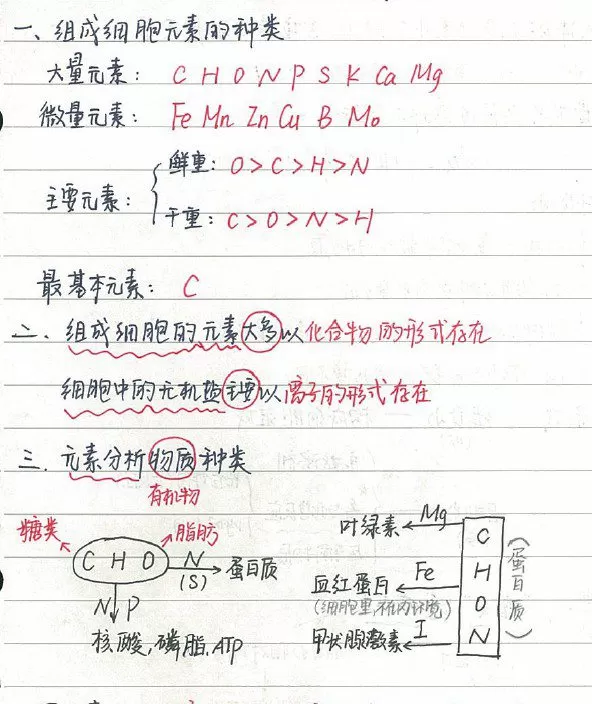 一、组成细胞元素的种类
大量元素: C H O N P S K Ca Mg
微量元素: Fe Mn Zn Cu B Mo
主要元素:
鲜重: O>C>H>N
干重: C>O>N>H
最基本元素: C
二、组成细胞的元素大多以化合物的形式存在
细胞中的无机盐主要以离子的形式存在
三、元素分析物质种类
有机物
糖类 脂肪
C H O N (S) 蛋白质
N P
核酸,磷脂.ATP
叶绿素 Mg C
血红蛋白 Fe H
(细胞里,不在内环境) O
甲状腺激素 I N
(蛋白质)